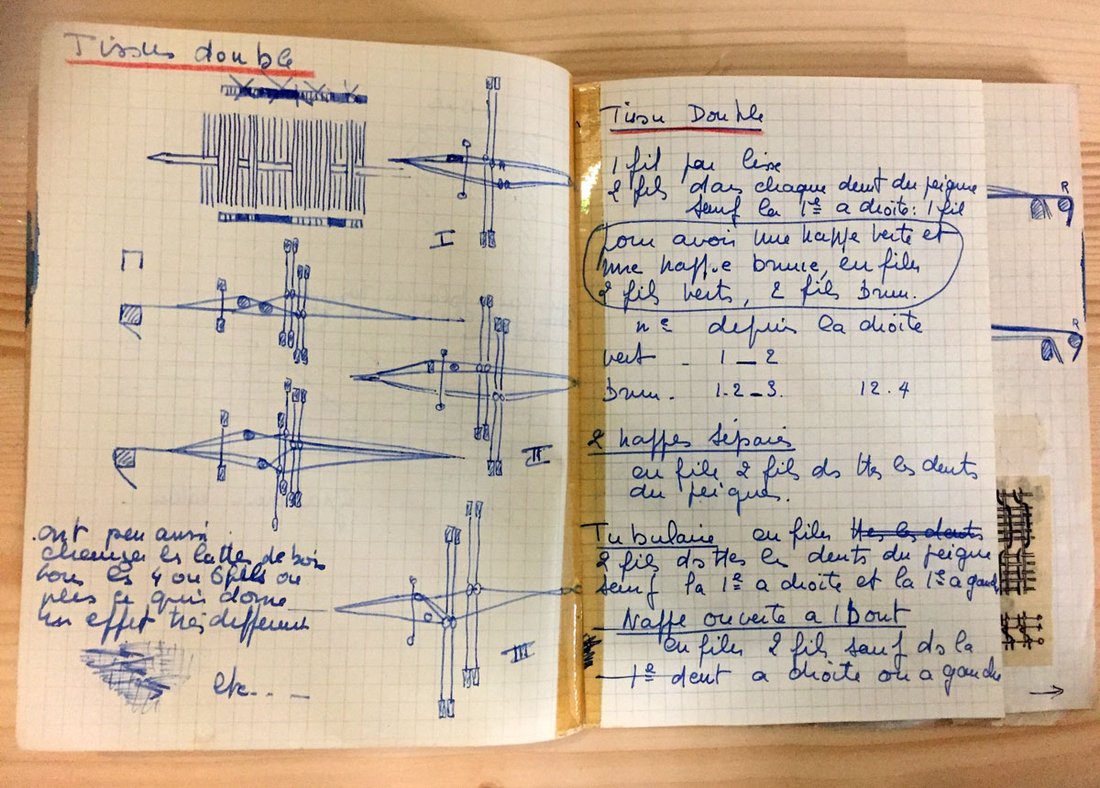 Tissus double
I
II
III
ont peu aussi
changer les lattes de bois
tous les 4 ou 6 fils ou
plus ce qui done
un effet très different
etc....
Tissu Double
1 fil par lisse
2 fils dans chaque dent du peigne
sauf la 1re a droite : 1 fil
pour avoir une nappe verte et
une nappe brune, enfiler
2 fils verts, 2 fils brun.
n° depuis la droite
vert - 1 _ 2
brun - 1.2 _ 3. 12.4
2 nappes séparés
enfile 2 fils ds ttes les dents
du peignes.
Tubulaire enfiler ttes les dents
2 fils ds ttes les dents du peigne
sauf la 1re a droite et la 1re a gauche
Nappe ouverte a 1 Bout
enfiler 2 fils sauf ds la
1re dent a droite ou a gauche
R
R